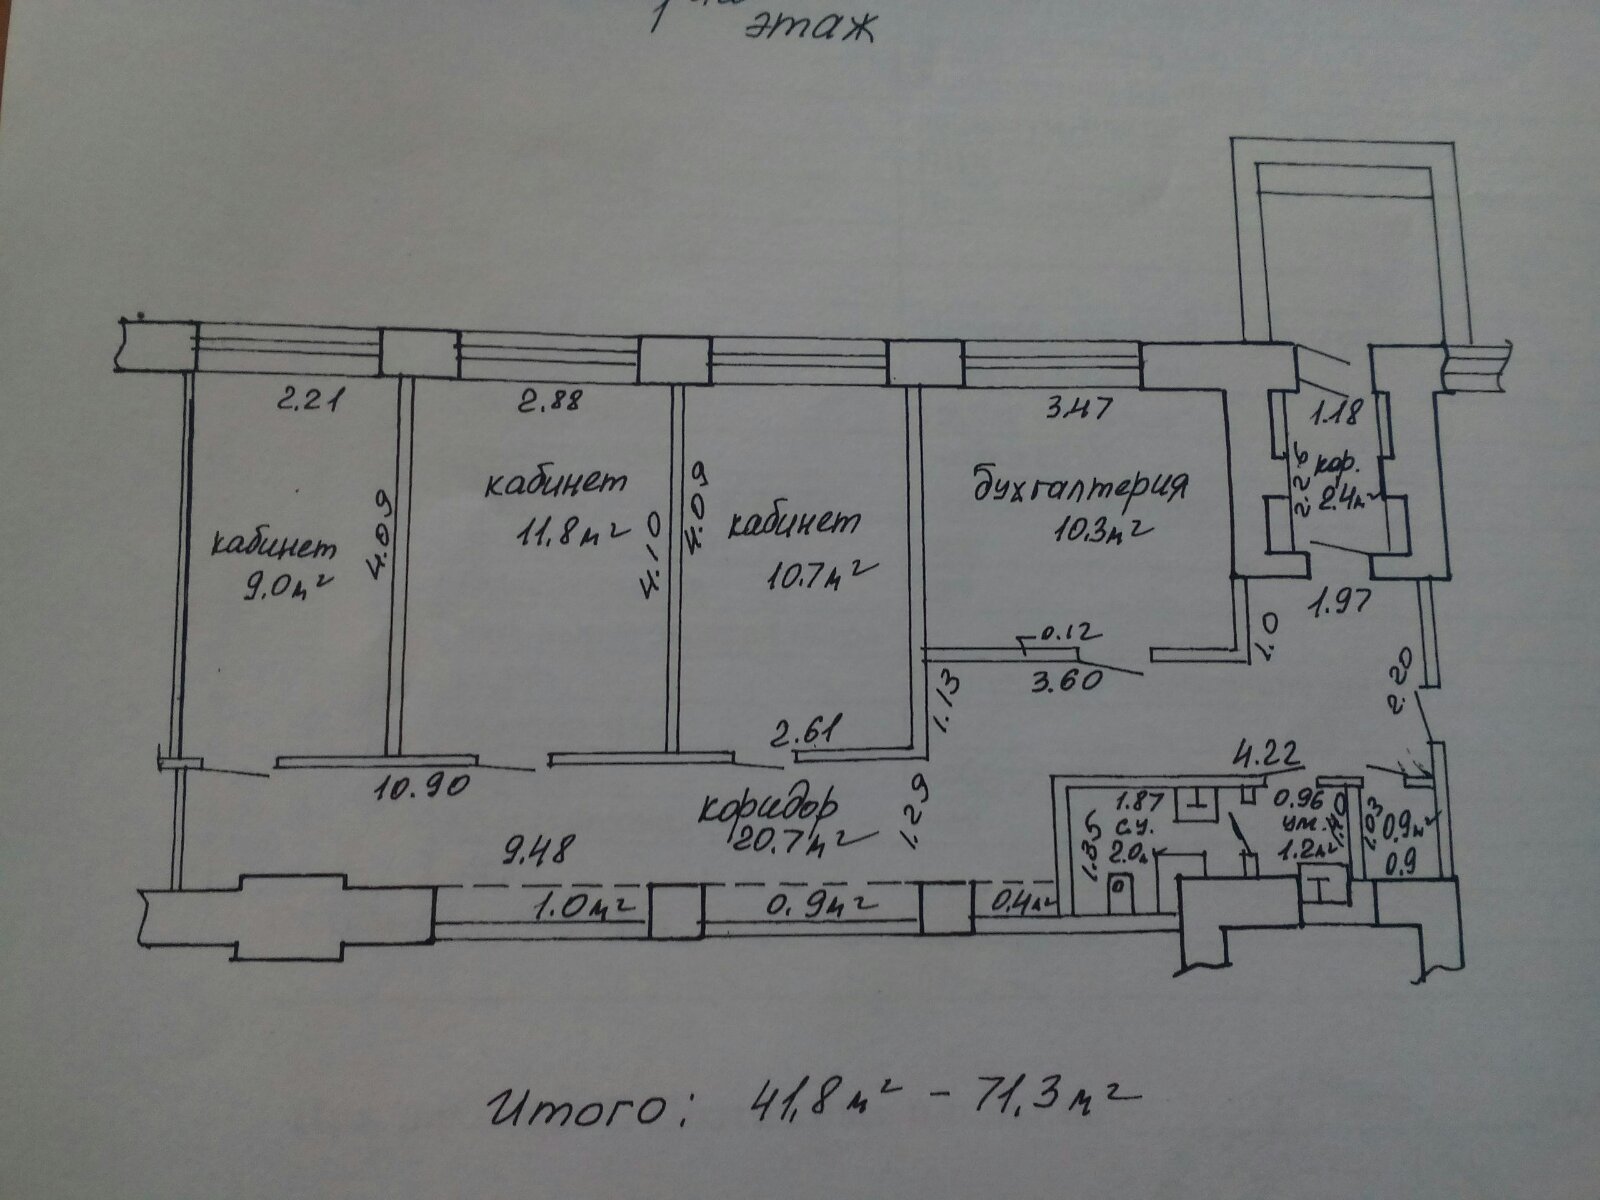 этаж
2.21
2.88
3.47
1.18
2.26
кор.
2.4м²
кабинет
9.0м²
4.09
кабинет
11.8м²
4.10
4.09
кабинет
10.7м²
бухгалтерия
10.3м²
0.12
3.60
1.13
1.0
1.97
2.20
2.61
10.90
4.22
коридор
20.7м²
1.29
9.48
1.87
с.у.
2.0м²
1.35
0.96
ум.
1.2м²
1.03
0.9м²
0.9
1.0м²
0.9м²
0.4м²
Итого: 41,8м² - 71,3м²